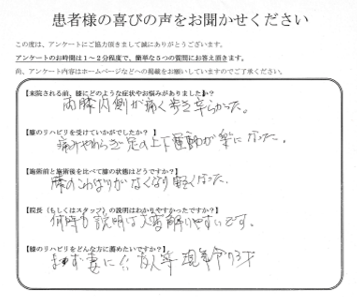 患者様の喜びの声をお聞かせください
この度は、アンケートにご協力頂きまして誠にありがとうございます。
アンケートのお時間は1~2分程度で、簡単な5つの質問にお答え頂きます。
尚、アンケート内容はホームページなどへの掲載をお願いしていますのでご了承ください。
【来院される前、膝にどのような症状やお悩みがありましたか?】
両膝内側が痛く歩き辛らかった。
【膝のリハビリを受けていかがでしたか?】
痛みやわらぎ足の上下運動が楽になった。
【施術前と施術後を比べて膝の状態はどうですか?】
膝のこわばりがなくなり軽くなった.
【院長(もしくはスタッフ)の説明はわかりやすかったですか?】
何時も説明は大変解りやすいです。
【膝のリハビリをどんな方に薦めたいですか?】
妻に 友人等